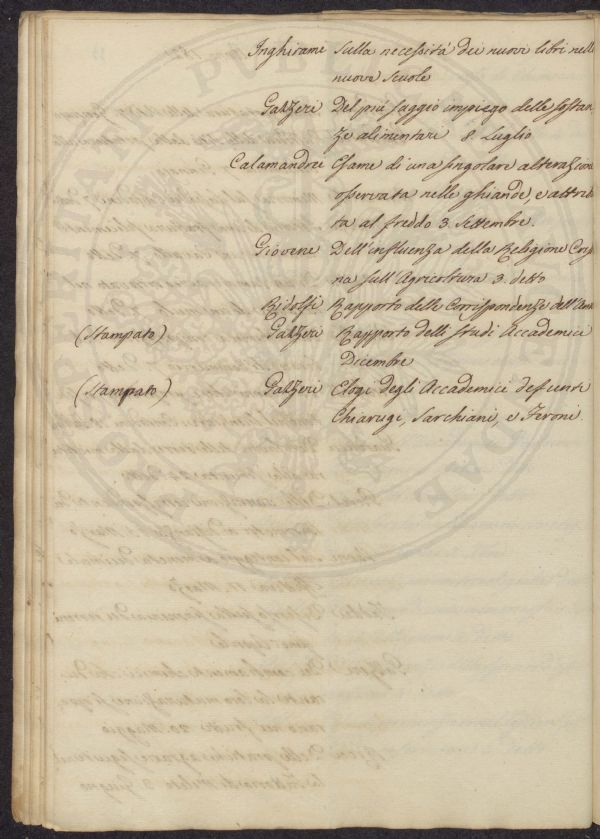 Inghirame Sulla necessità dei nuovi libri nelle
nuove Scuole
Gazzeri Del più saggio impiego delle sostan
ze alimentari 8. Luglio
Calamandrei Esame di una singolare alterazione
osservata nelle ghiande, e attribui
ta al freddo 3. Settembre.
Giovene Dell'influenza della Religione Cris
na sull'Agricoltura 3. detto
Ridolfi Rapporto delle Corrispondenze dell'
(Stampato) Gazzeri Rapporto delli Studi Accademici
Dicembre
(Stampato) Gazzeri Elogi degli Accademici defunti
Chiarugi, Sarchiani, e Feroni.